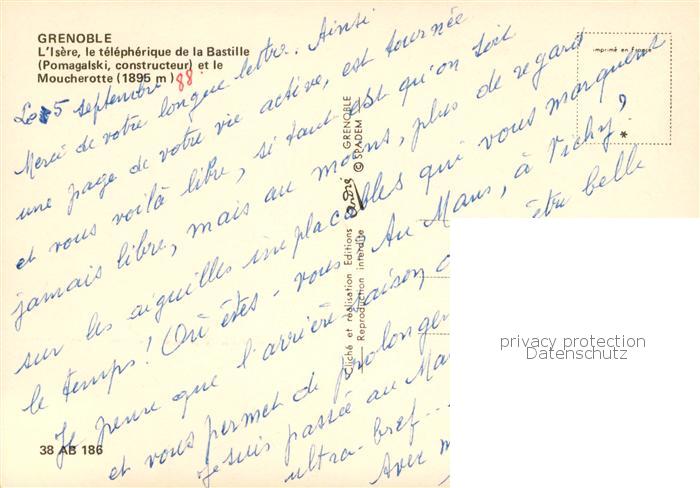 GRENOBLE
L'Isère, le téléphérique de la Bastille
(Pomagalski, constructeur) et le
Moucherotte (1895 m)
Le 5 septembre 88.
Merci de votre longue lettre. Ainsi
une page de votre vie active, est tournée
et vous voilà libre, si tant est qu'on soit
jamais libre, mais au moins, plus de regard
sur les aiguilles implacables qui vous marquent
le temps! Où êtes-vous? Au Mans, à Vichy?
Je pense que l'arrière saison être belle
et vous permet de prolonger
Je suis passé au Man
ultra-bref...
Avec m
imprimé en France
*
Cliché et réalisation Editions André GRENOBLE
Reproduction interdite © SPADEM
38 AB 186
privacy protection
Datenschutz